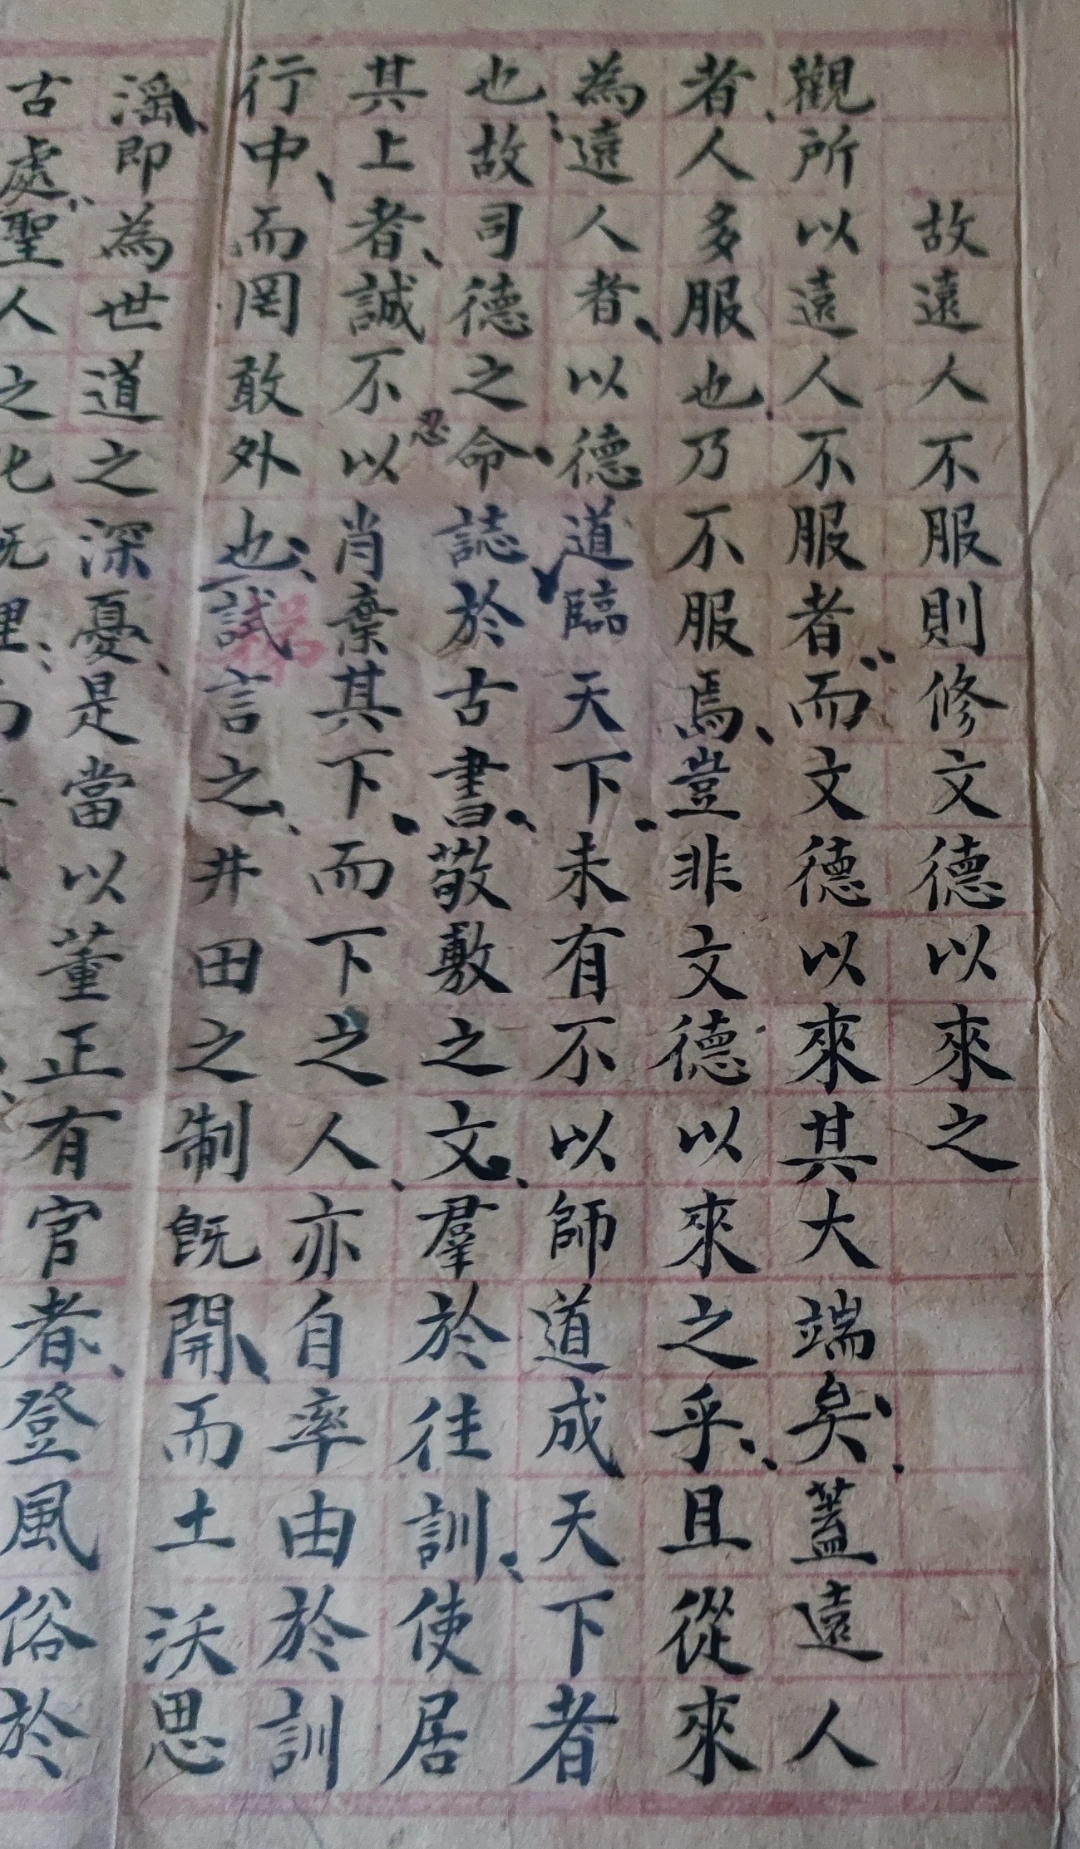 故遠人不服則修文德以來之
觀所以遠人不服者而文德以來其大端矣蓋遠人
者人多服也乃不服焉豈非文德以來之乎且從來
為遠人者以德道臨天下未有不以師道成天下者
也故司德之命誌於古書敬敷之文羣於往訓使居
其上者誠不以忍肖棄其下而下之人亦自率由於訓
行中而罔敢外也試言之井田之制既開而土沃思
滛即為世道之深憂是當以董正有官者登風俗於
古處聖人之